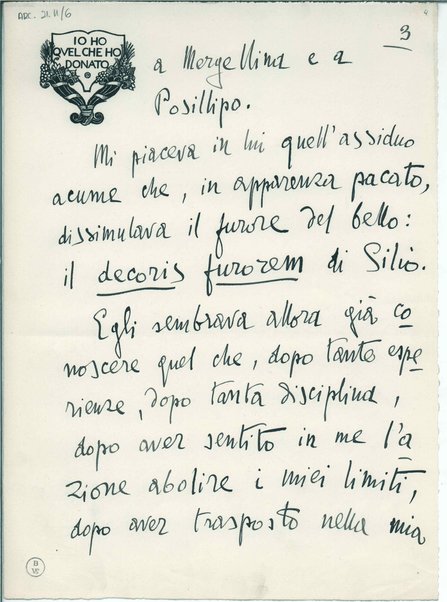 ARC. 21. II/6
4
3
IO HO
QVEL CHE HO
DONATO
a Mergellina e a
Posillipo.
Mi piaceva in lui quell'assiduo
acume che, in apparenza pacato,
dissimulava il furore del bello:
il decoris furorem di Silio.
Egli sembrava allora già co-
noscere quel che, dopo tante espe-
rienze, dopo tanta disciplina,
dopo aver sentito in me l'a-
zione abolire i miei limiti,
dopo aver trasposto nella mia